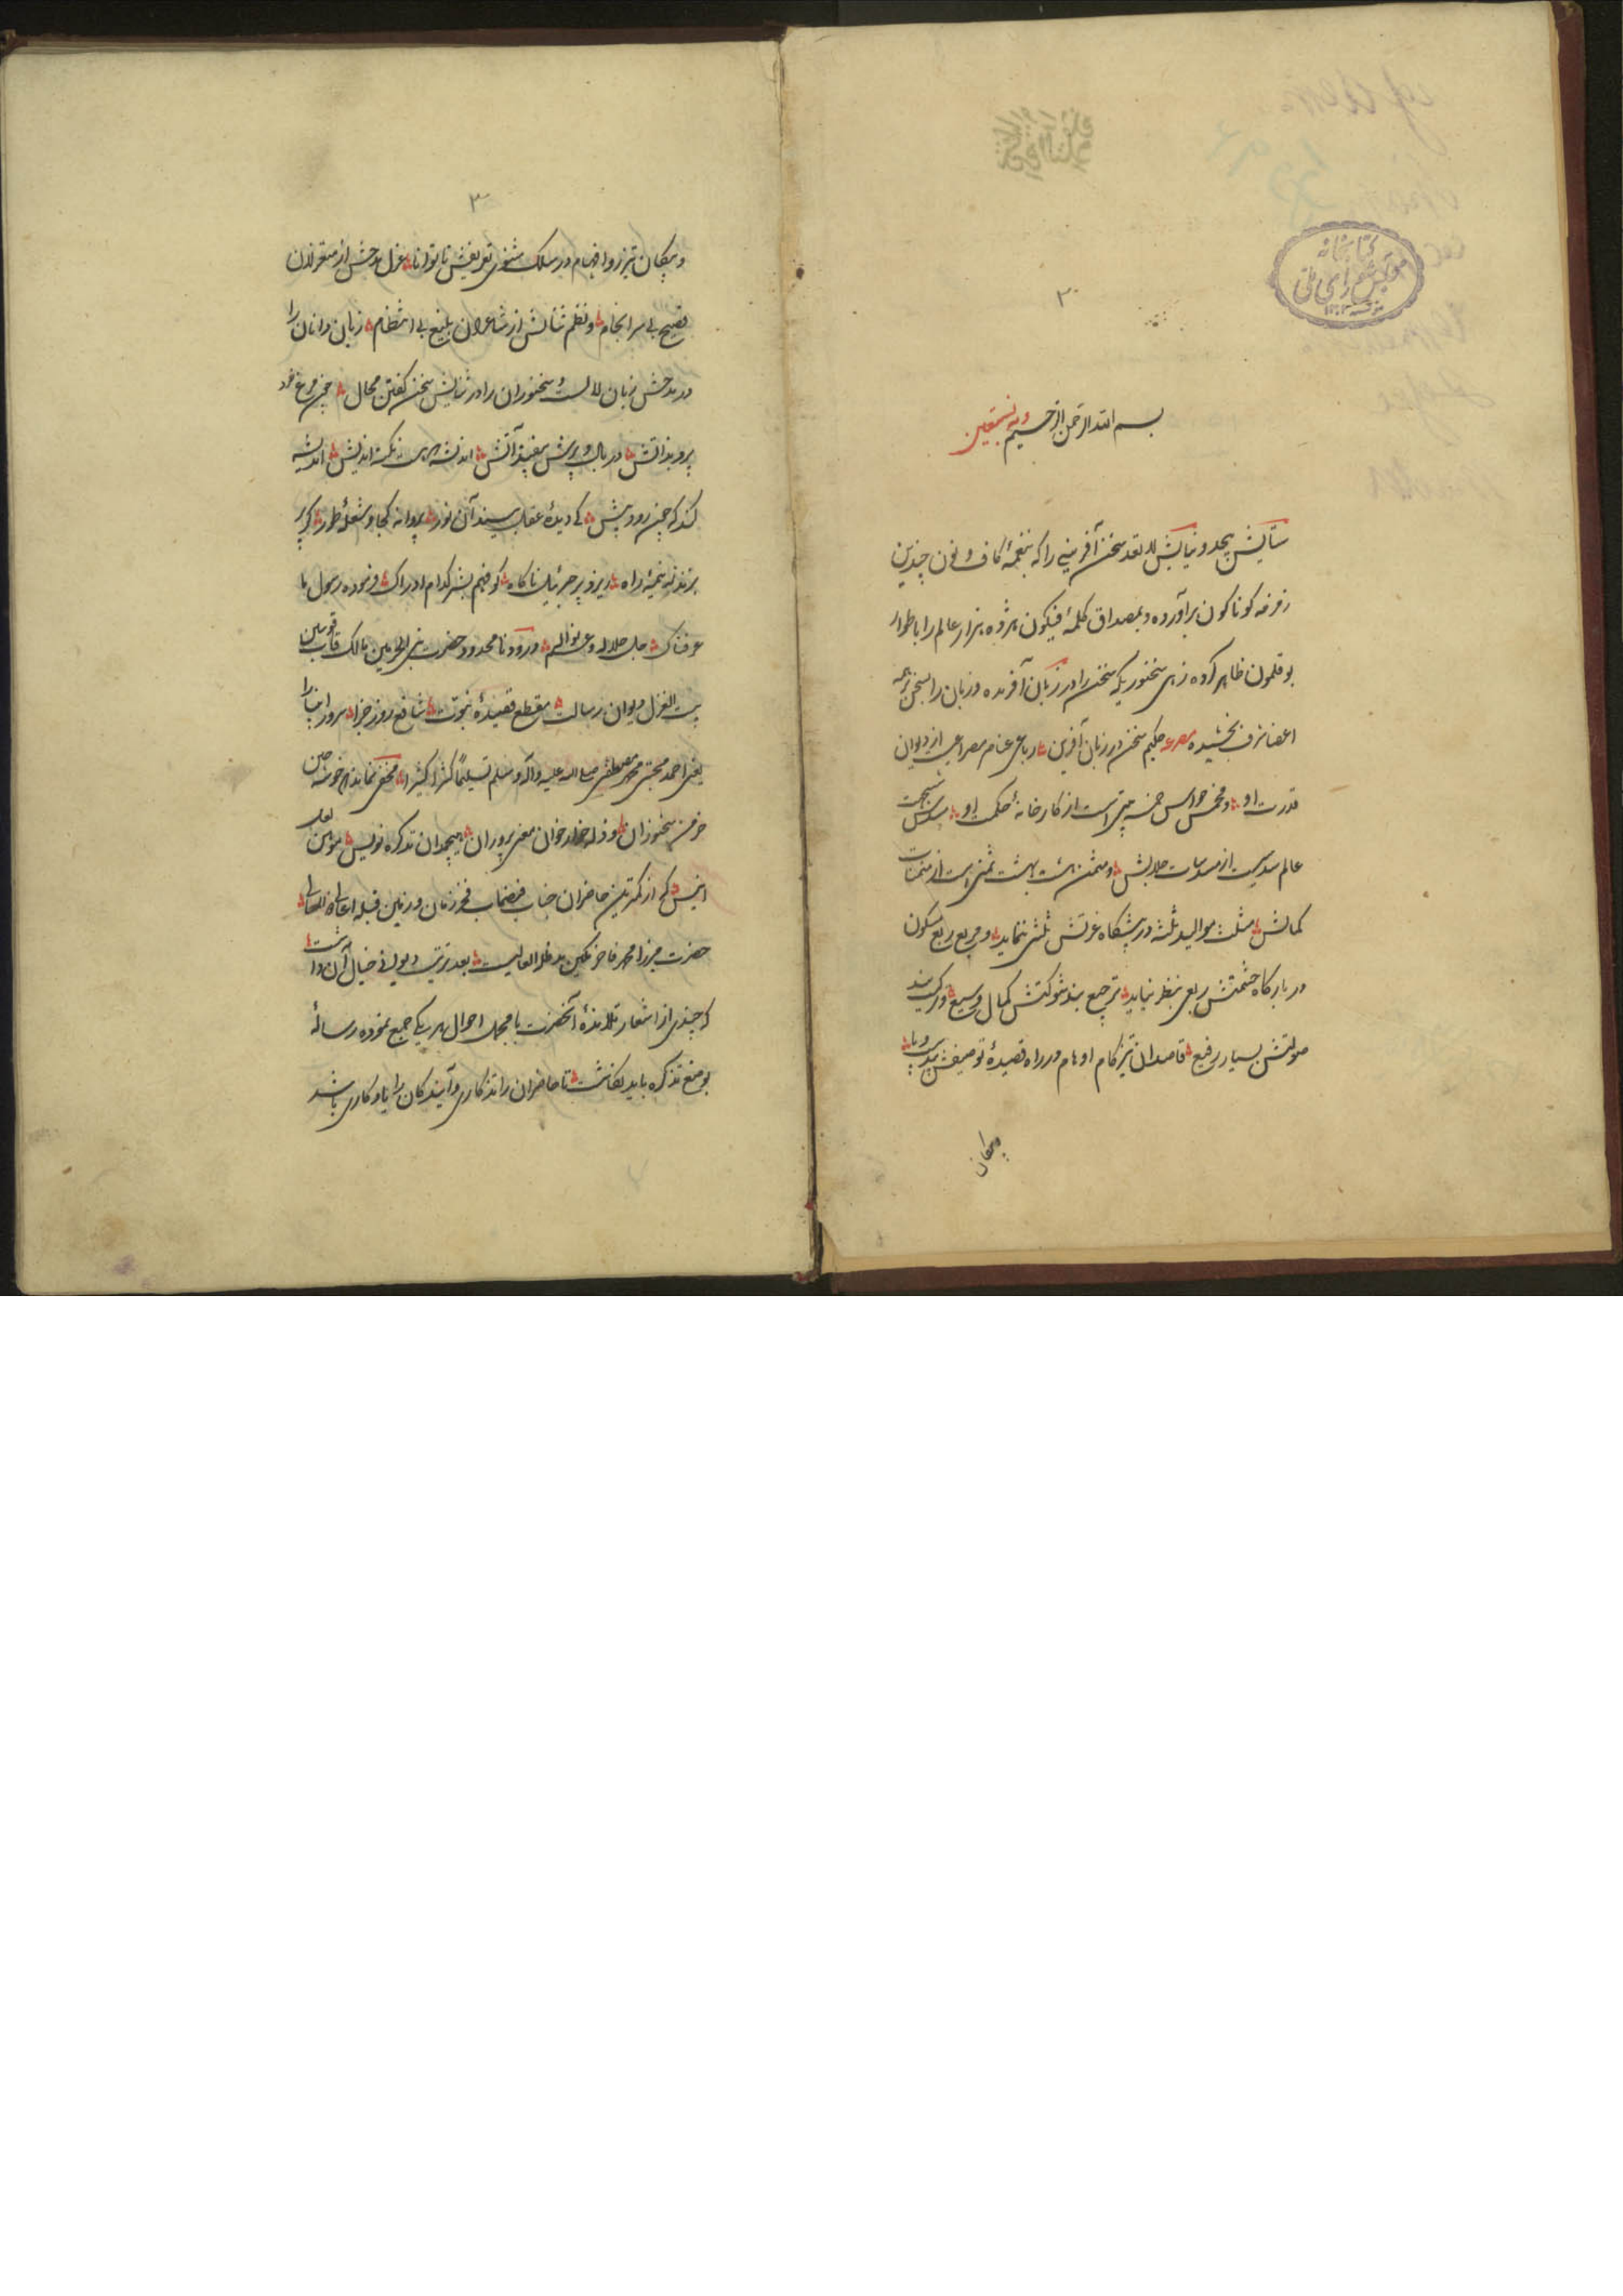 ۲
بسم الله الرحمن الرحیم وبه نستعین
ستایش بیحد و نیایش لا تعد سخن آفرینی را که بنغمهٔ کاف و نون چندین
زمزمه کوناکون برآورده و بمصداق کلمهٔ فیکون هژده هزار عالم را باطوار
بوقلمون ظاهر کرده زهی سخنوریکه سخن را در زبان آفریده و زبان را بسخن بر همه
اعضا شرف بخشیده مصرعه حکیم سخن در زبان آفرین رباعی عناصر مصراعیست از دیوان
قدرت او و مخمس حواس خمسه بیتی است از کارخانهٔ حکمت او مسدس ششجهت
عالم سدسیست از مسدسات جلالش و مثمن هشت بهشت ثمنی است از مثمنات
کمالش مثلث موالید ثلثه در پیشکاه عزتش ثلثی ننماید و مربع ربع مسکون
در بارکاه حشمتش ربعی بنظر نیاید ترجیع بند شوکتش کمال وسیع و ترکیب بند
صولتش بسیار رفیع قاصدان تیزکام اوهام در راه قصیدهٔ توصیفش بیدست و پا
و پیکان
۳
و پیکان تیزرو افهام در مسلک مثنوی تعریفش ناتوانا غزل مدحش از متغزلان
فصیح بی سرانجام و نظم ثنایش از شاعران بلیغ بی انتظام زبان دانان را
در مدحش زبان لالست و سخنوران را در ثنایش سخن کفتن محال چون مرغ خرد
پرد بذاتش در بال و پرش بیفتد آتش اندیشه نکته اندیش اندیشه
کند که چون رود پیش کی دیدهٔ عقل بیند آن نور پروانه کجا و شعلهٔ طور کر پر
بزند به نیمهٔ راه ریزد پر جبرئیل ناکاه کو فهم بشر کدام ادراک فرموده رسول ما
عرفناک جل جلاله و عم نواله و درود نامحدود حضرت نبی الحرمین مالک قاب قوسین
بیت الغزل دیوان رسالت مقطع قصیدهٔ نبوت شافع روز جزا سرور انبیا
یعنی احمد مجتبی محمد مصطفی صلی الله علیه وآله وسلم تسلیماً کثیراً کثیرا مخفی نماند که خوشه چین
خرمن سخنوران و ذله خوار خوان معنی پروران هیچمدان تذکره نویس موهن لعل
انیس که از کمترین حاضران جناب فیضماب فخر زمان و زمین قبله اعالی و اهالی
حضرت میرزا محمد فاخر مکین مدظله العالیست بعد ترتیب دیوان خیال آن داشت
که چندی از اشعار تلامذهٔ آنحضرت با مجمل احوال هر یکی جمع نموده رسالهٔ
بوضع تذکره باید نکاشت تا حاضران را تذکاری و آیندکان را یادکاری باشد